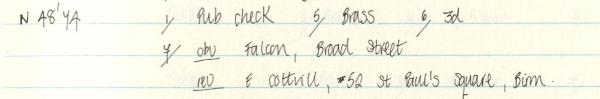 N 48' YA 1/ Pub check 5/ Brass 6/ 3d
7/ obv Falcon, Broad Street
rev E Cottrill, #52 St Paul's Square, Birm.